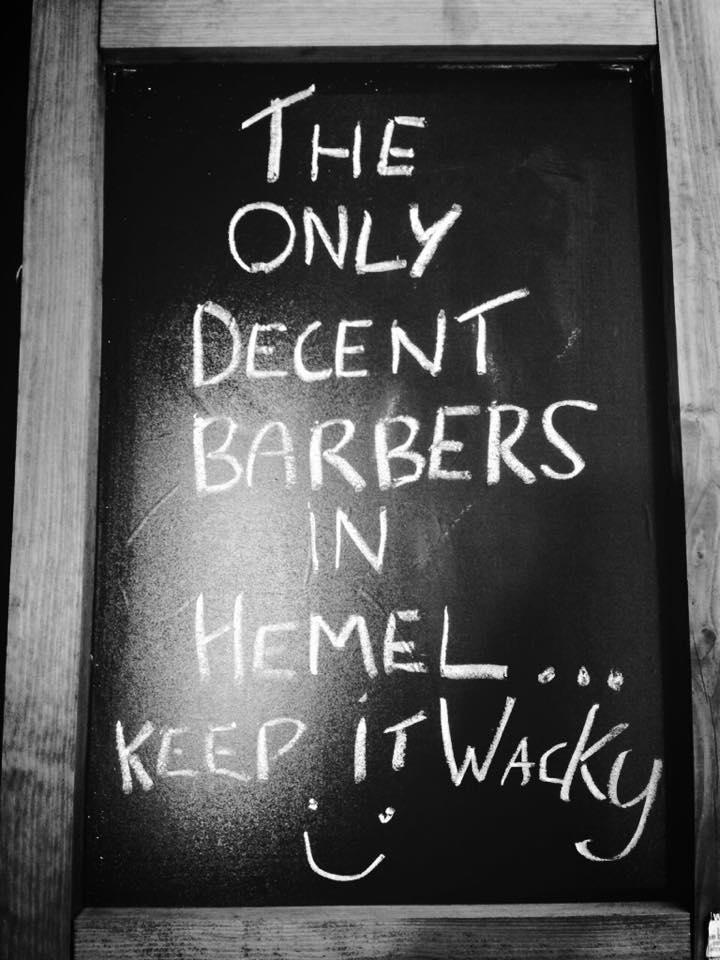 THE
ONLY
DECENT
BARBERS
IN
HEMEL...
KEEP iT WACKy